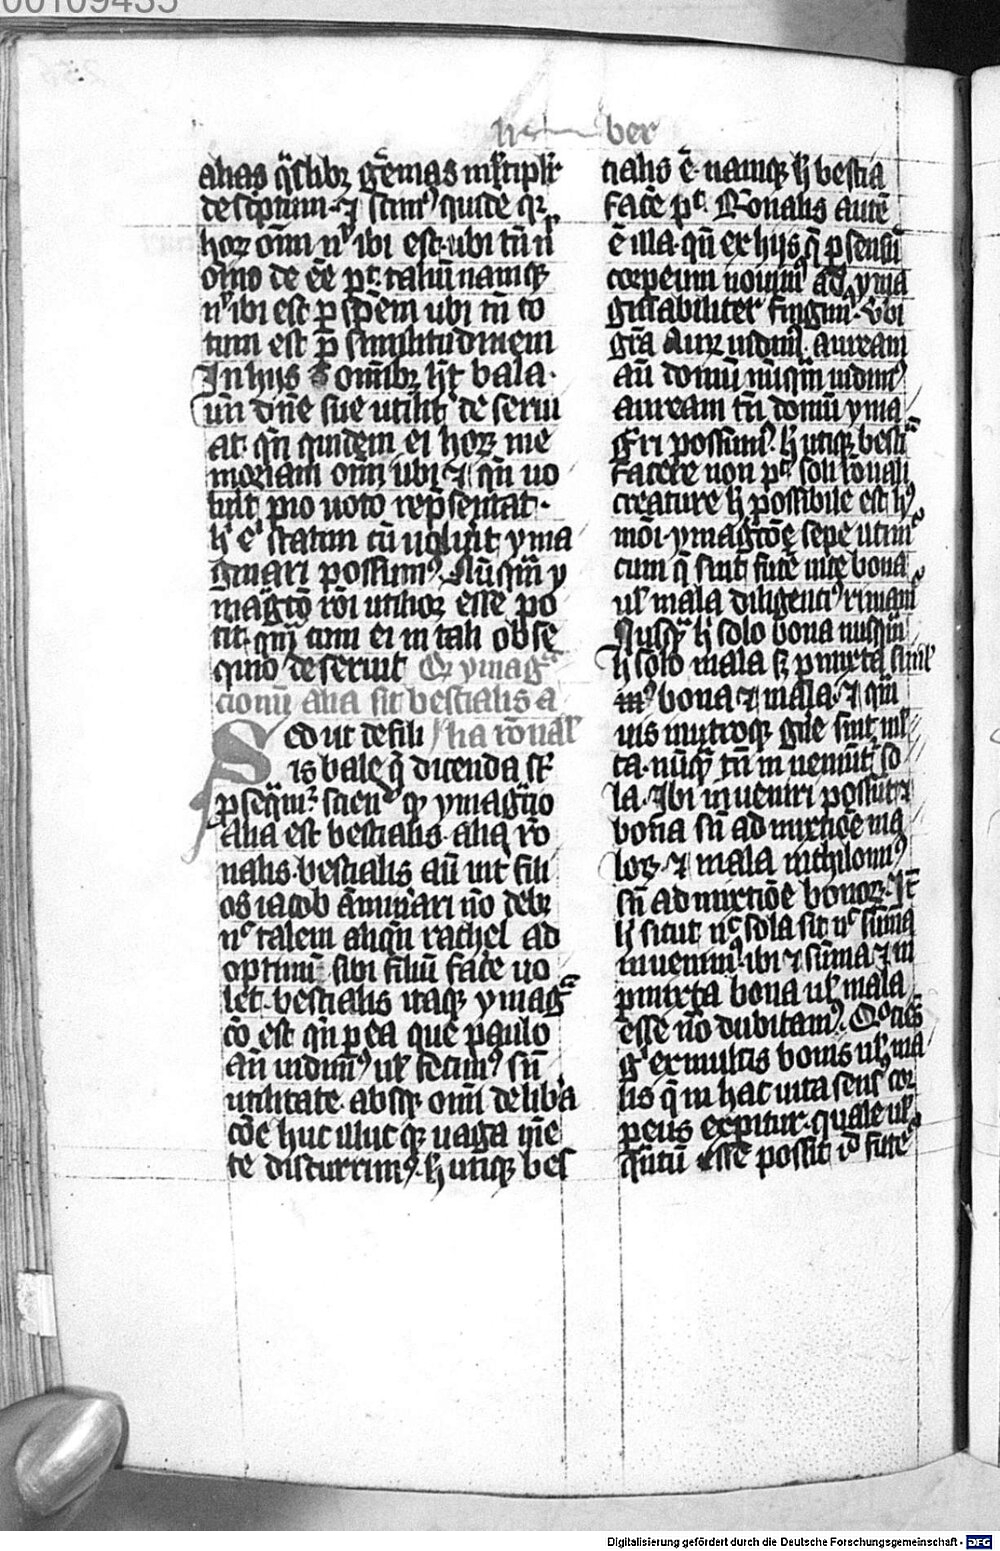 00109435
li ber
alias
de scptum ⁊ scim⁹ quide qr
hoꝝ om̄i nͨ ibi est ubi tn̄ n̄
oīno de eē pt. taliū namqꝫ
nͨ ibi est ꝑ spēm ubi tn̄ to
tum est ꝑ similitudinem
In hijs oīnibꝫ hʒ bala
un dn̄e sue utilitʳ de serui
at. qn̄ quidem ei hoꝝ me
moriam om̄ ubi ⁊ qn̄ uo
luit pro uoto rep̄sentat.
hʒ eͥ statim cū uolūit yma
ginari possum⁹. Nūsqm̄ y
magͣtō rōi utilioꝝ esse po
tit. qm̄ cum ei in tali obse
quio deseruit Qꝫ ymagͣ
cionū alia sit bestialis a
Sed ut de fili lia rōnal
is bale q̄ dicenda sͭ
ꝑseqm̄r sciend qꝫ ymagͣtio
alia est bestialis. alia rō
nalis. bestialis aū int fili
os iacob ānumāri nō debꝫ
nͨ talem aliqn̄ rachel ad
optiuū sibi filiū fače uo
let. bestialis itaqꝫ ymagͣ
cō est qn̄ ꝑ ea que paulo
an̄ uidim⁹ ul̄ fecim⁹ sn̄
utilitate. absqꝫ om̄i deliba
cōe huc illuc qꝫ uaga mē
te discurrim⁹. hʒ utiqꝫ bes
tialis ē. namqꝫ hʒ bestia
facē pͭ. Rōnalis autē
ē illa. qn̄ ex hijs q̄ ꝑ sensū
corpeum nouim⁹ ad yma
ginabiliter fingim⁹. Vbi
grā Auꝝ uidim⁹. auream
aū domū nūsqm̄ uidim⁹
auream tn̄ domū yma
gͥri possum⁹. hʒ utiqꝫ besti
facere non pͭ. soli rōnali
creature hʒ possibile est hͥ
mōi ymagͣtōe sepe utim̄
cum q̄ sint futē uite bona
ul̄ mala diligenti⁹ rimam̄
Nusqͣ hʒ solo bona nusqm̄
hʒ solo mala sꝫ ꝑmixta simͥl
in⁹ bona ⁊ mala. ⁊ qm̄
uis in utroqꝫ gn̄e sint ml̄
ta. nūqͣ tn̄ in ueniūt̄ so
la. Ibi in ueniri possūt ⁊
bona sn̄ ad mixtiōe ma
loꝝ. ⁊ mala nichilomī⁹
sn̄ ad mixtiōe bonoꝝ. Itͭ
hʒ sicut nͨ sola sit nͨ sūma
inuenim⁹. ibi ⁊ sūma ⁊ in
ꝑmixta bona ul̄ mala
esse nō dubitam⁹. Qͦciēs
gͥ ex multis bonis ul̄ ma
lis q̄ in hac uita sens⁹ cor
peus expitur. quale ul̄
qn̄tū esse possit id futē
Digitalisierung gefördert durch die Deutsche Forschungsgemeinschaft - DFG